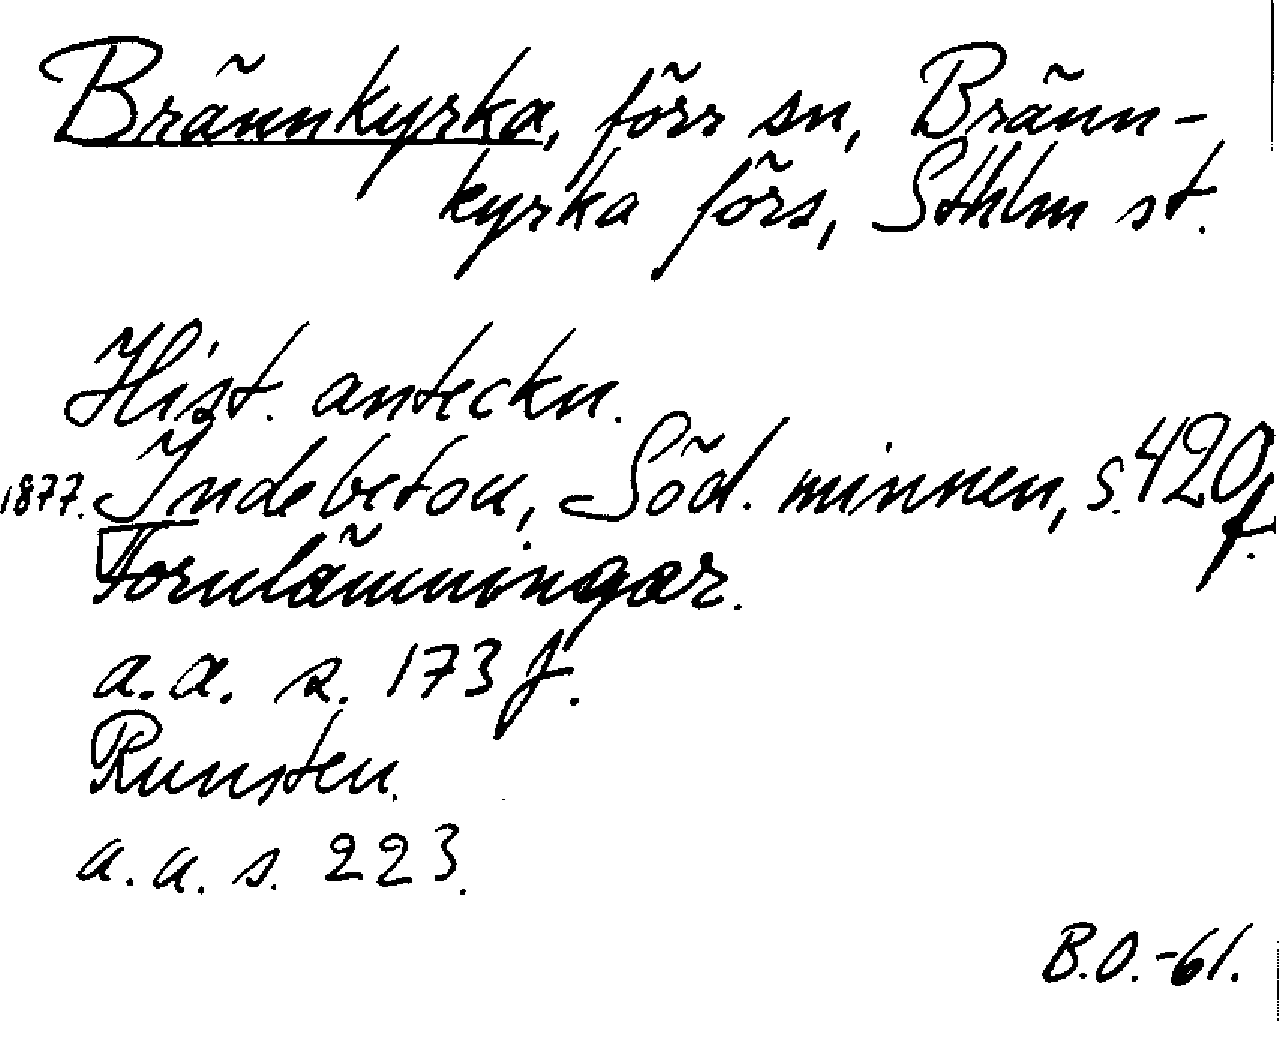 Brännkyrka, förr sn, Bränn-
kyrka förs, Sthlm st.
Hist. anteckn.
1877. Indebetou, Söd. minnen, s. 420 f.
Fornlämningar.
a.a. s. 173 f.
Runsten.
a.a. s. 223.
B.O.-61.